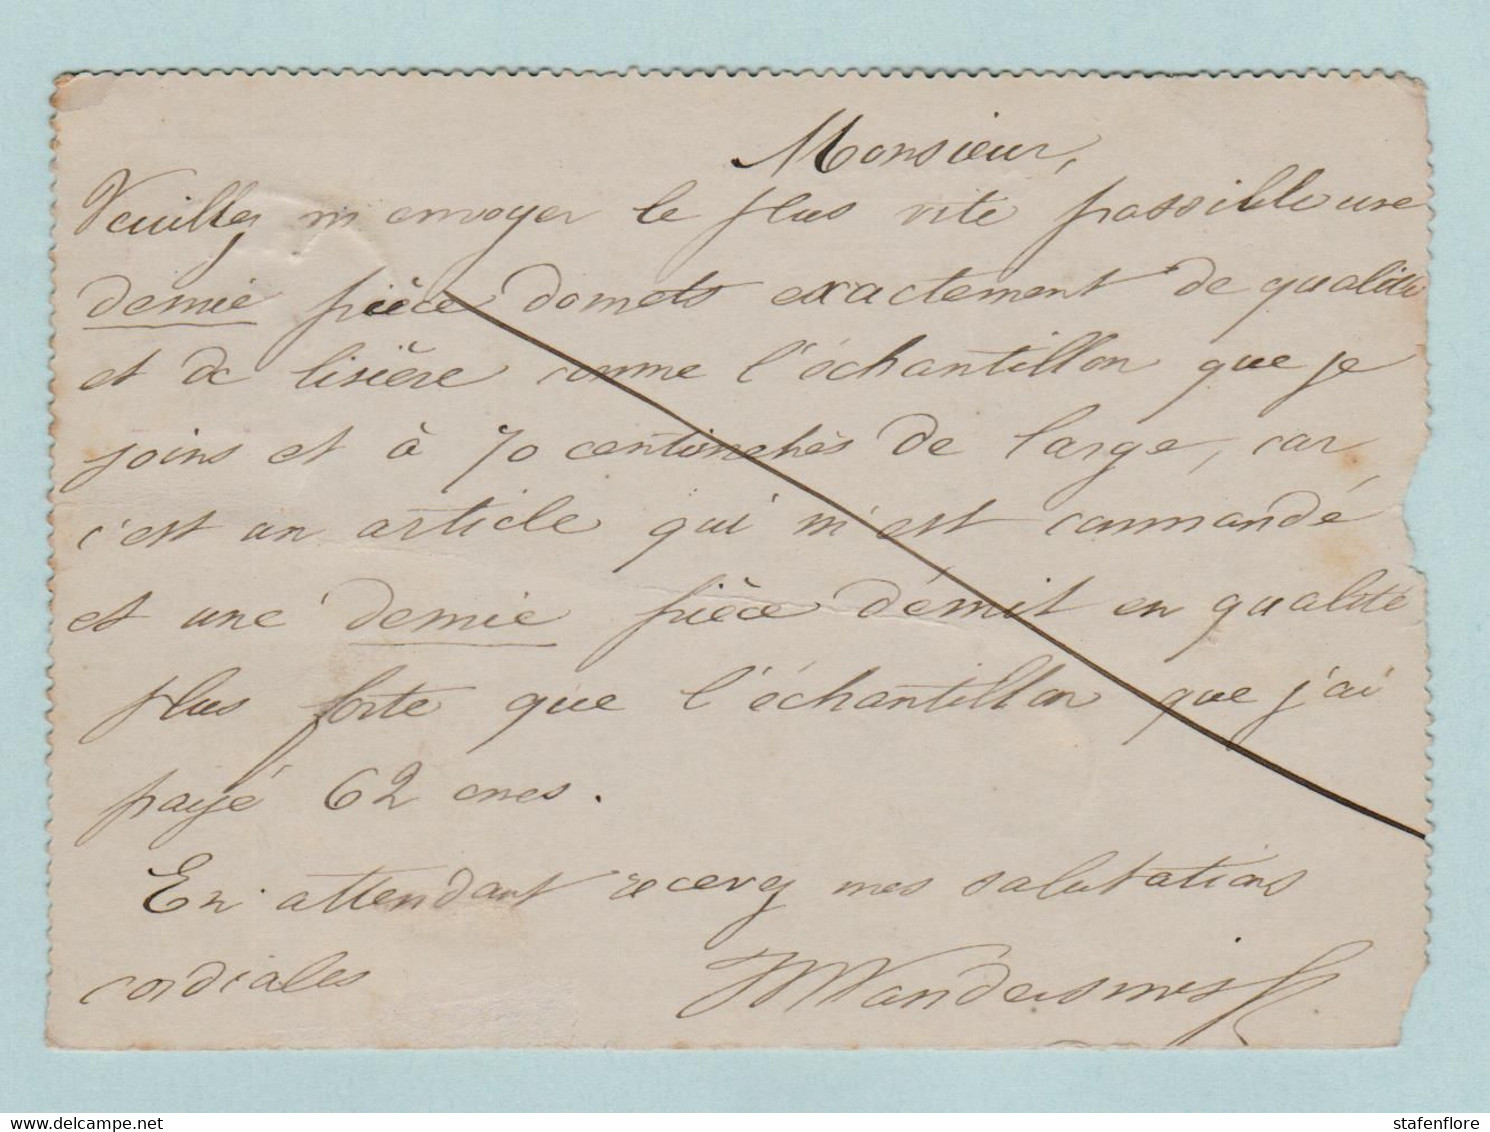 Monsieur,
Veuillez m'envoyer le plus vite possible une
demie pièce domets exactement de qualité
et de lisière comme l'échantillon que je
joins et à 70 centimètres de large, car
c'est un article qui m'est commandé
et une demie pièce en qualité
plus forte que l'échantillon que j'ai
payé 62 cmes.
En attendant recevez mes salutations
cordiales
stafenflore